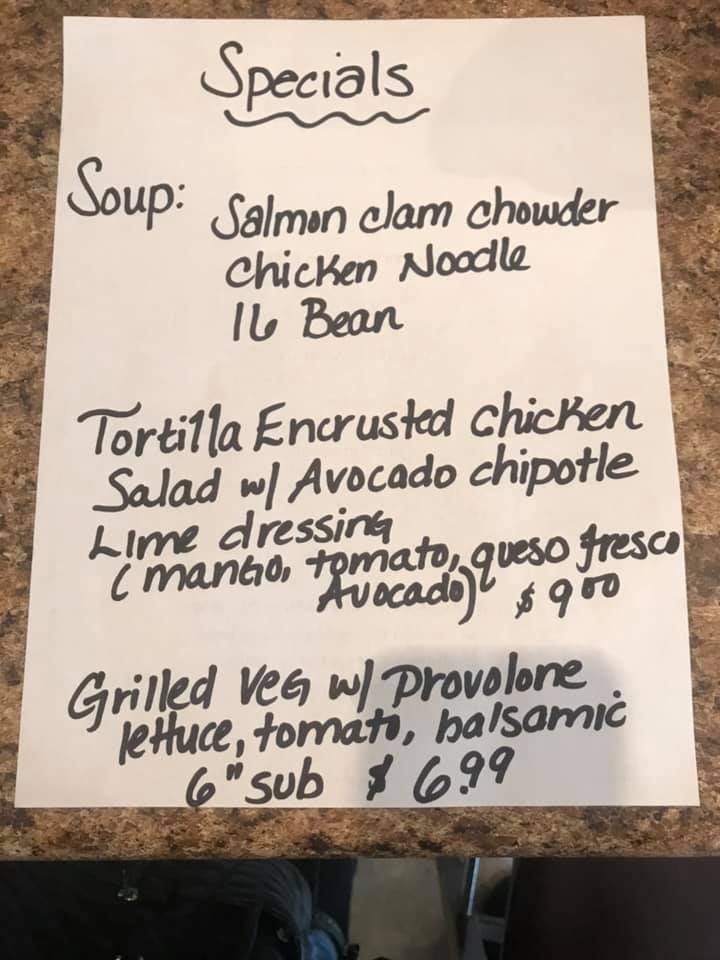 Specials
Soup: Salmon clam chowder
Chicken Noodle
16 Bean
Tortilla Encrusted Chicken
Salad w/ Avocado chipotle
Lime dressing
(mango, tomato, queso fresco
Avocado) $9.00
Grilled Veg w/ Provolone
lettuce, tomato, balsamic
6" sub $6.99